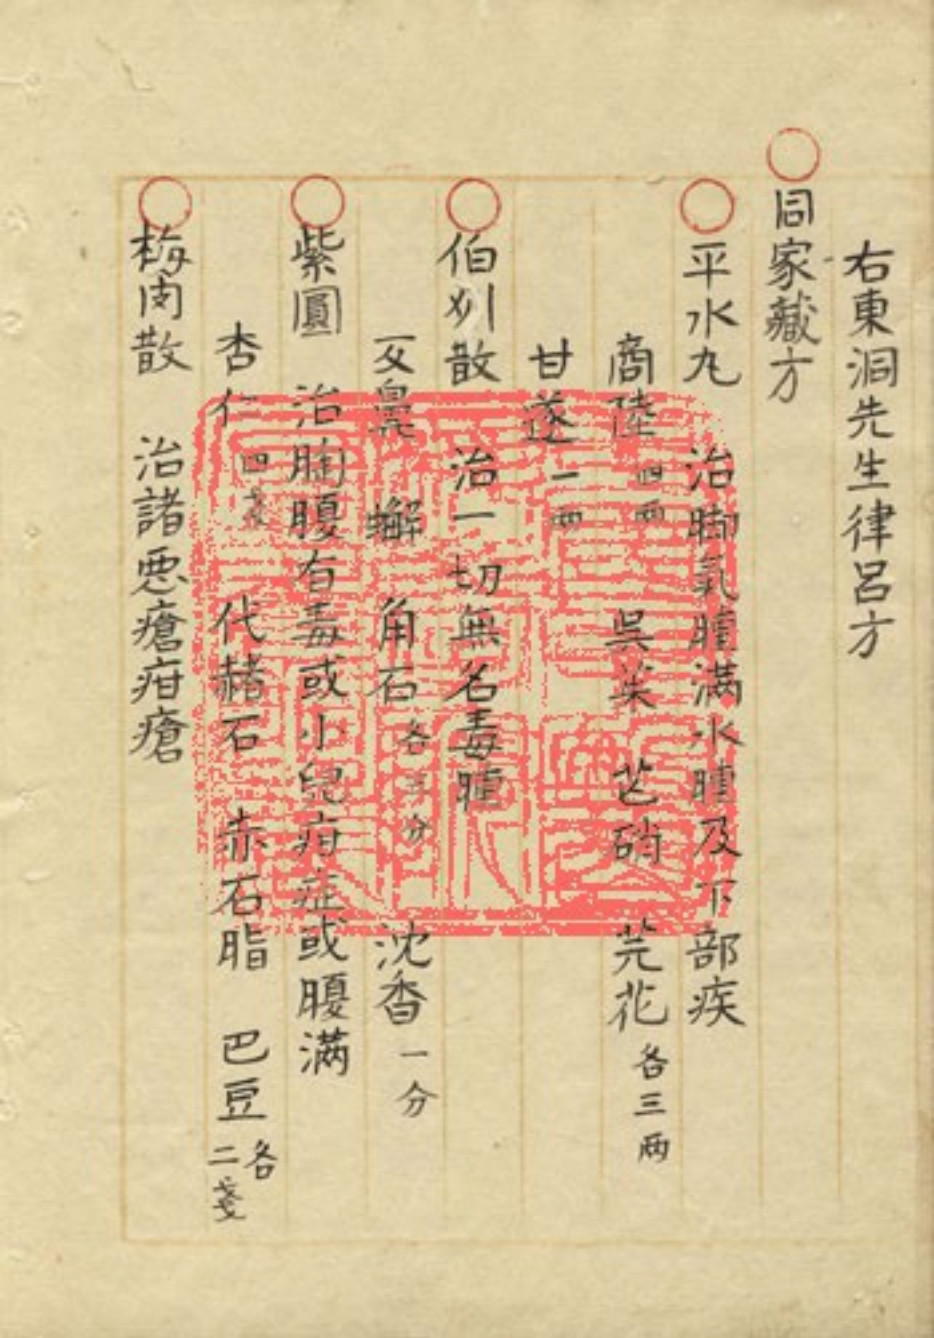 右東洞先生律呂方
同家藏方
平水丸 治脚氣腫満水腫及下部疾
商陸 四両 呉茱 芒硝 芫花 各三両
甘遂 一両
伯刕散 治一切無名毒腫
反鼻 蠏 角石 各 分 沈香 一分
紫圓 治胸腹有毒或小兒疳症或腹満
杏仁 四戔 代赭石 赤石脂 巴豆 各二戔
梅肉散 治諸悪瘡疳瘡